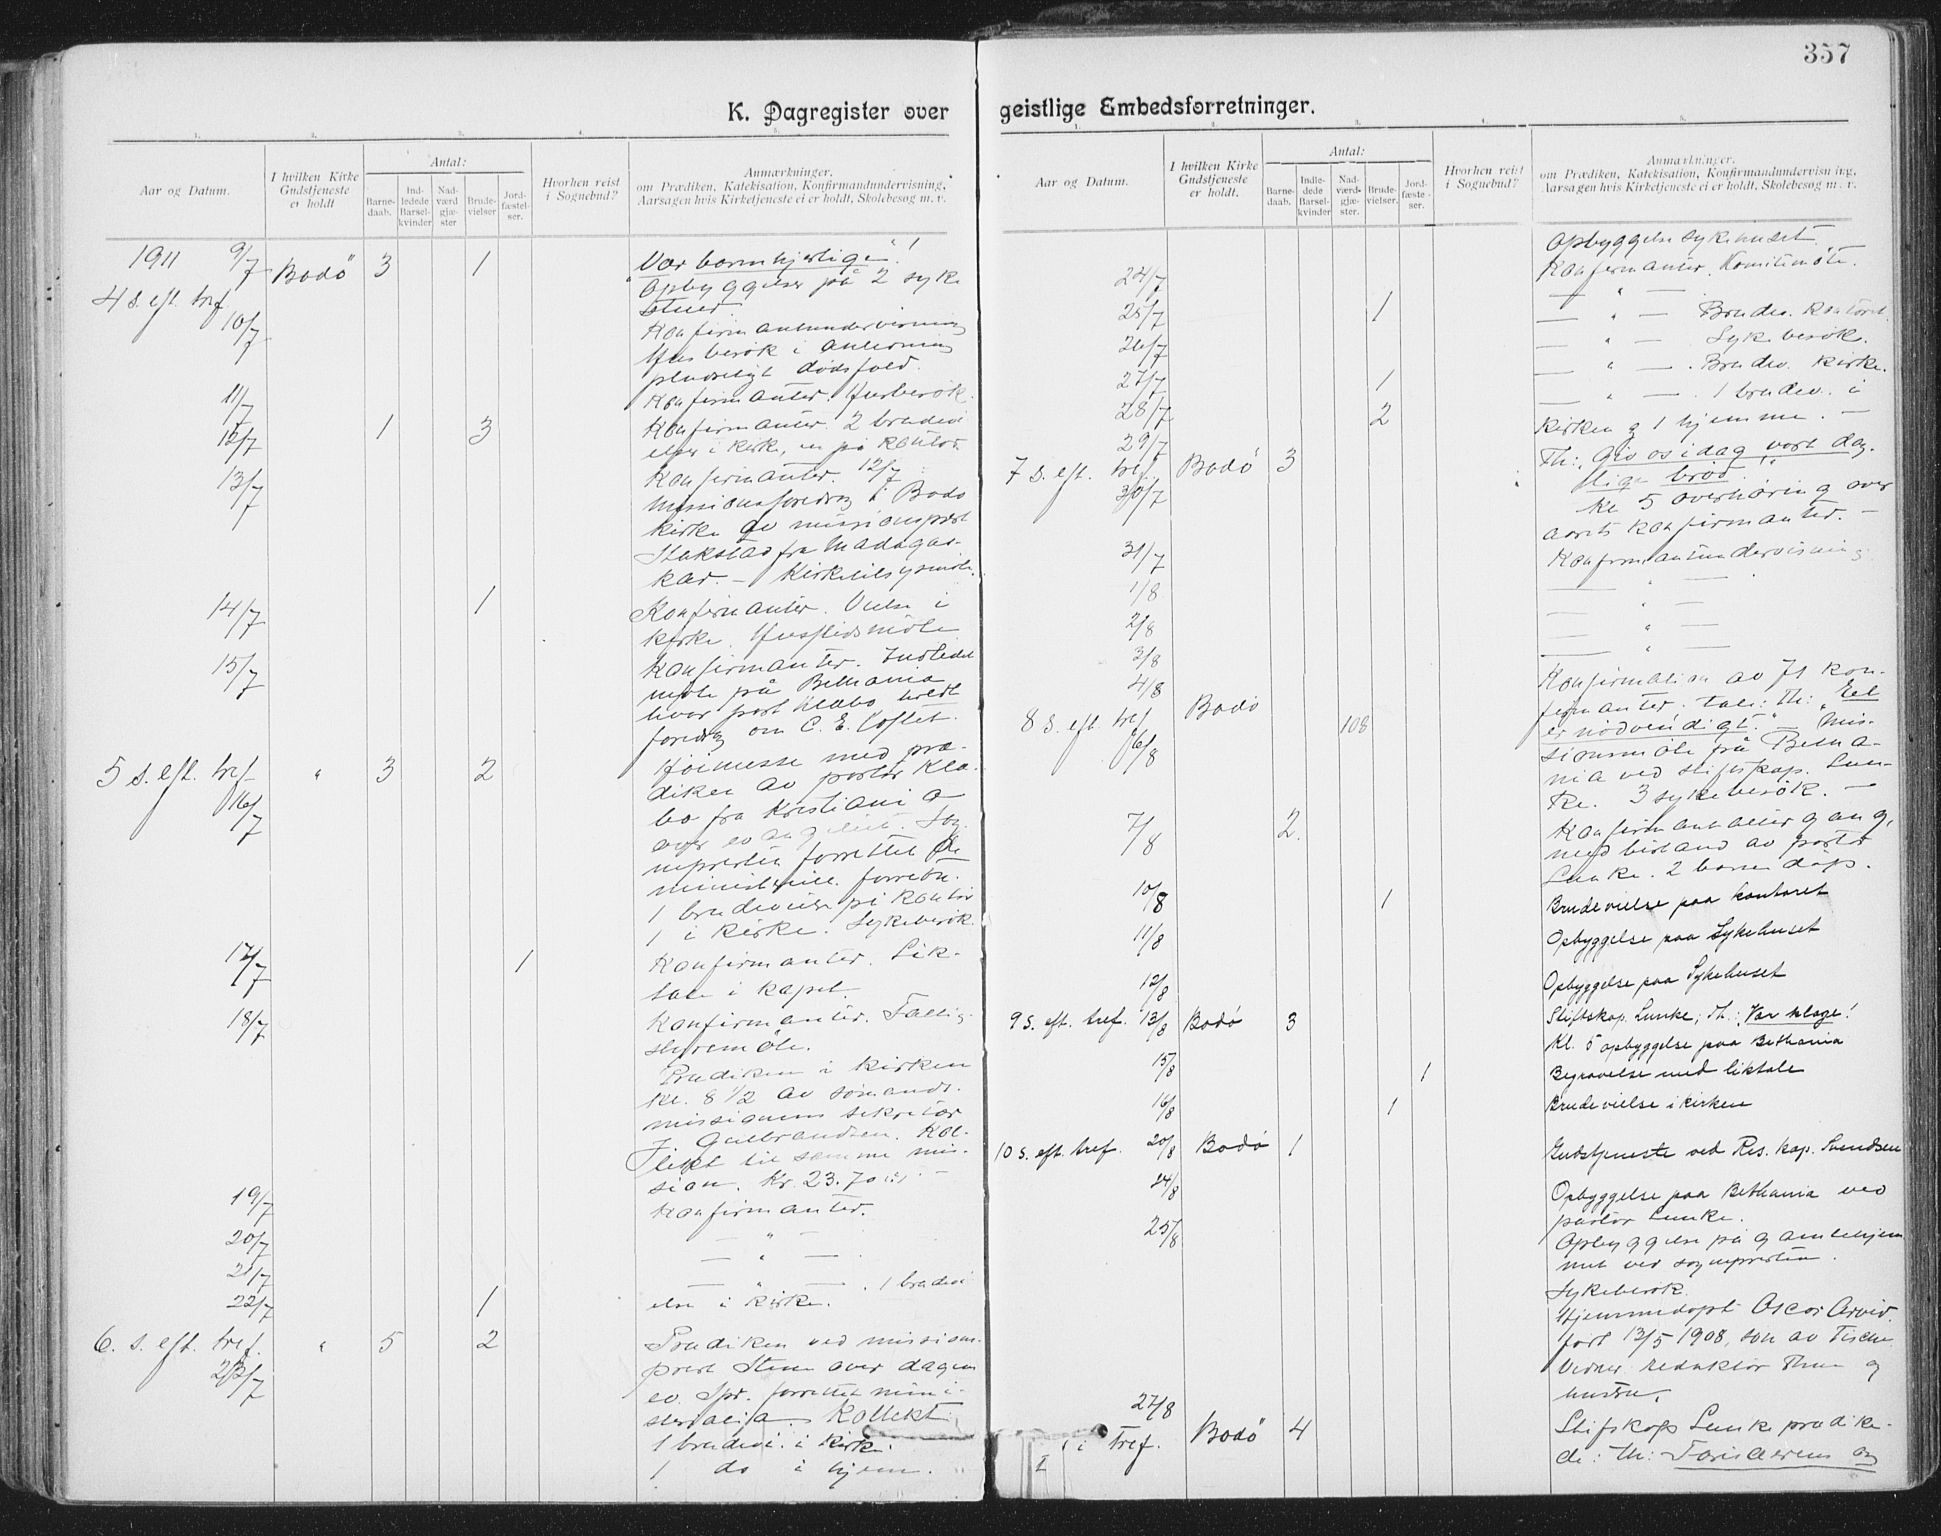 357
K. Dagregister over geistlige Embedsforretninger.
1. 2. 3. 4. 5.
Aar og Datum.
I hvilken Kirke Gudstjeneste er holdt
Antal:
Barne-daab.
Ind-ledede Barsel-kvinder
Nad-værd gjæ-ster
Brude-vielser
Jord-fæstel-ser.
Hvorhen reist i Sognebud?
Anmærkninger.
om Prædiken, Katekisation, Konfirmandundervisning,
Aarsagen hvis Kirketjeneste ei er holdt, Skolebesøg m. v.
1911 9/7 Bodö 3 1 Vær barmhjertige!
4 s. eft. tref. Opbyggelser på 2 syke
stuer.
10/7 Konfirmantundervisning
Husbesök i anledning
pludseligt dödsfald.
11/7 Konfirmanter. Husbesök.
12/7 1 3 Konfirmanter. 2 brudevi
elser i kirke, en på kontor.
13/7 Konfirmanter. 12/7
missionsforedrag i Bodö
kirke av missionsprest
Stakstad fra Madagas-
kar. – Kirketilsynsmöte.
14/7 1 Konfirmanter. Vielse i
kirke. Husflidsmöte
15/7 Konfirmanter.
möte på Bethania
hvor past. Klæbo holdt
foredrag om C. E. Loftet.
5 s. eft. tref. 16/7 " 3 2 Höimesse med præ-
diken av pastor Klæ-
bo fra Kristiania
over evangeliet. Sog-
nepresten forrettet
ministerielle forretn.
1 brudevielse på kontor
1 i kirke. Sykebesök.
17/7 1 Konfirmanter. Lik-
tale i kapel.
18/7 Konfirmanter. Fattig-
styremöte.
Prædiken i kirken
kl. 8 1/2 av sömands-
missionens sekretær
J. Gulbrandsen. Kol-
lekt til samme mis-
sion. Kr. 23.70
19/7 Konfirmanter.
20/7 — " —
21/7 — " —
22/7 1 — " — . 1 brudevi
else i kirke.
6. s. eft. tref. 23/7 " 5 2 Prædiken ved mission-
prest Steen over dagens
ev. Spr. forrettet mini-
sterialia. Kollekt.
1 brudevi. i kirke.
1 do i hjem.
1. 2. 3. 4. 5.
Aar og Datum.
I hvilken Kirke Gudstjeneste er holdt.
Antal:
Barne-daab.
Indle-dede Barsel-kvinder
Nad-værd-gjæ-ster.
Brude-vielser.
Jord-fæste-ser.
Hvorhen reist i Sognebud?
Anmærkninger.
om Prædiken, Katekisation, Konfirmandundervisning,
Aarsagen hvis Kirketjeneste ei er holdt, Skolebesøg m. v.
Opbyggelse sykehuset
24/7 Konfirmanter. Komitemöte.
25/7 1 — " — Brudev. kontoret.
26/7 — " — Sykebesök.
27/7 1 — " — . Brudev. kirke.
28/7 2 — " — . 1 brudev. i
29/7 kirken og 1 hjemme. –
7 s. eft. tref. 30/7 Bodö 3 Th: „Giv os idag vort dag-
lige bröd"
Kl 5 overhöring over
aarets konfirmanter. –
31/7 Konfirmantundervisning
1/8 — " —
2/8 — " —
3/8 — " —
4/8 Konfirmation av 71 kon-
8 s. eft. tref. 6/8 Bodö 108 firmanter. tale: Th: „Eet
er nödvendigt." – Mis-
sionsmöte på Betha-
nia ved stiftskap. Lun-
ke. 3 sykebesök. –
7/8 2. Konfirmantaltergang,
med bistand av pastor
Lunke. 2 barnedåp.
10/8 1 Brudevielse paa kontoret
11/8 Opbyggelse paa Sykehuset
12/8 Opbyggelse paa Sykehuset
9 s. eft. tref. 13/8 Bodö 3 Stiftskap. Lunke; Th.: Var klage!
Kl. 5 opbyggelse paa Bethania
15/8 1 Begravelse med liktale
16/8 1 Brudevielse i kirken
10 s. eft. tref. 20/8 Bodö 1 Gudstjeneste ved Res. kap. Svendsen
24/8 Opbyggelse paa Bethania ved
pastor Lunke.
25/8 Opbyggelse på gamlehjem
met ved sognepresten.
Sykebesök.
Hjemmedöpt Oscar Arvid.
född 13/5 1908, sön av
Verner redaktör og
hustru.
27/8 i Tref. Bodö 4 Stiftskap Lunke prædike-
de: Th: Farisæerens og